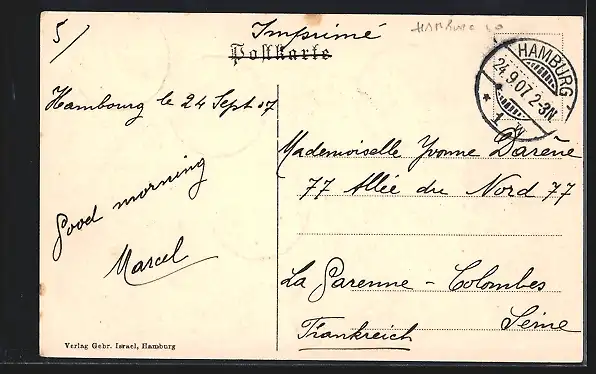 5/
Imprimé
HAMBURG
Postkarte
HAMBURG
24.9.07.2-3N
* 1 *
Hambourg le 24 Sept 07
Mademoiselle Yvonne Darène
77 Allée du Nord 77
Good morning
Marcel
La Garenne - Colombes
Seine
Frankreich
Verlag Gebr. Israel, Hamburg